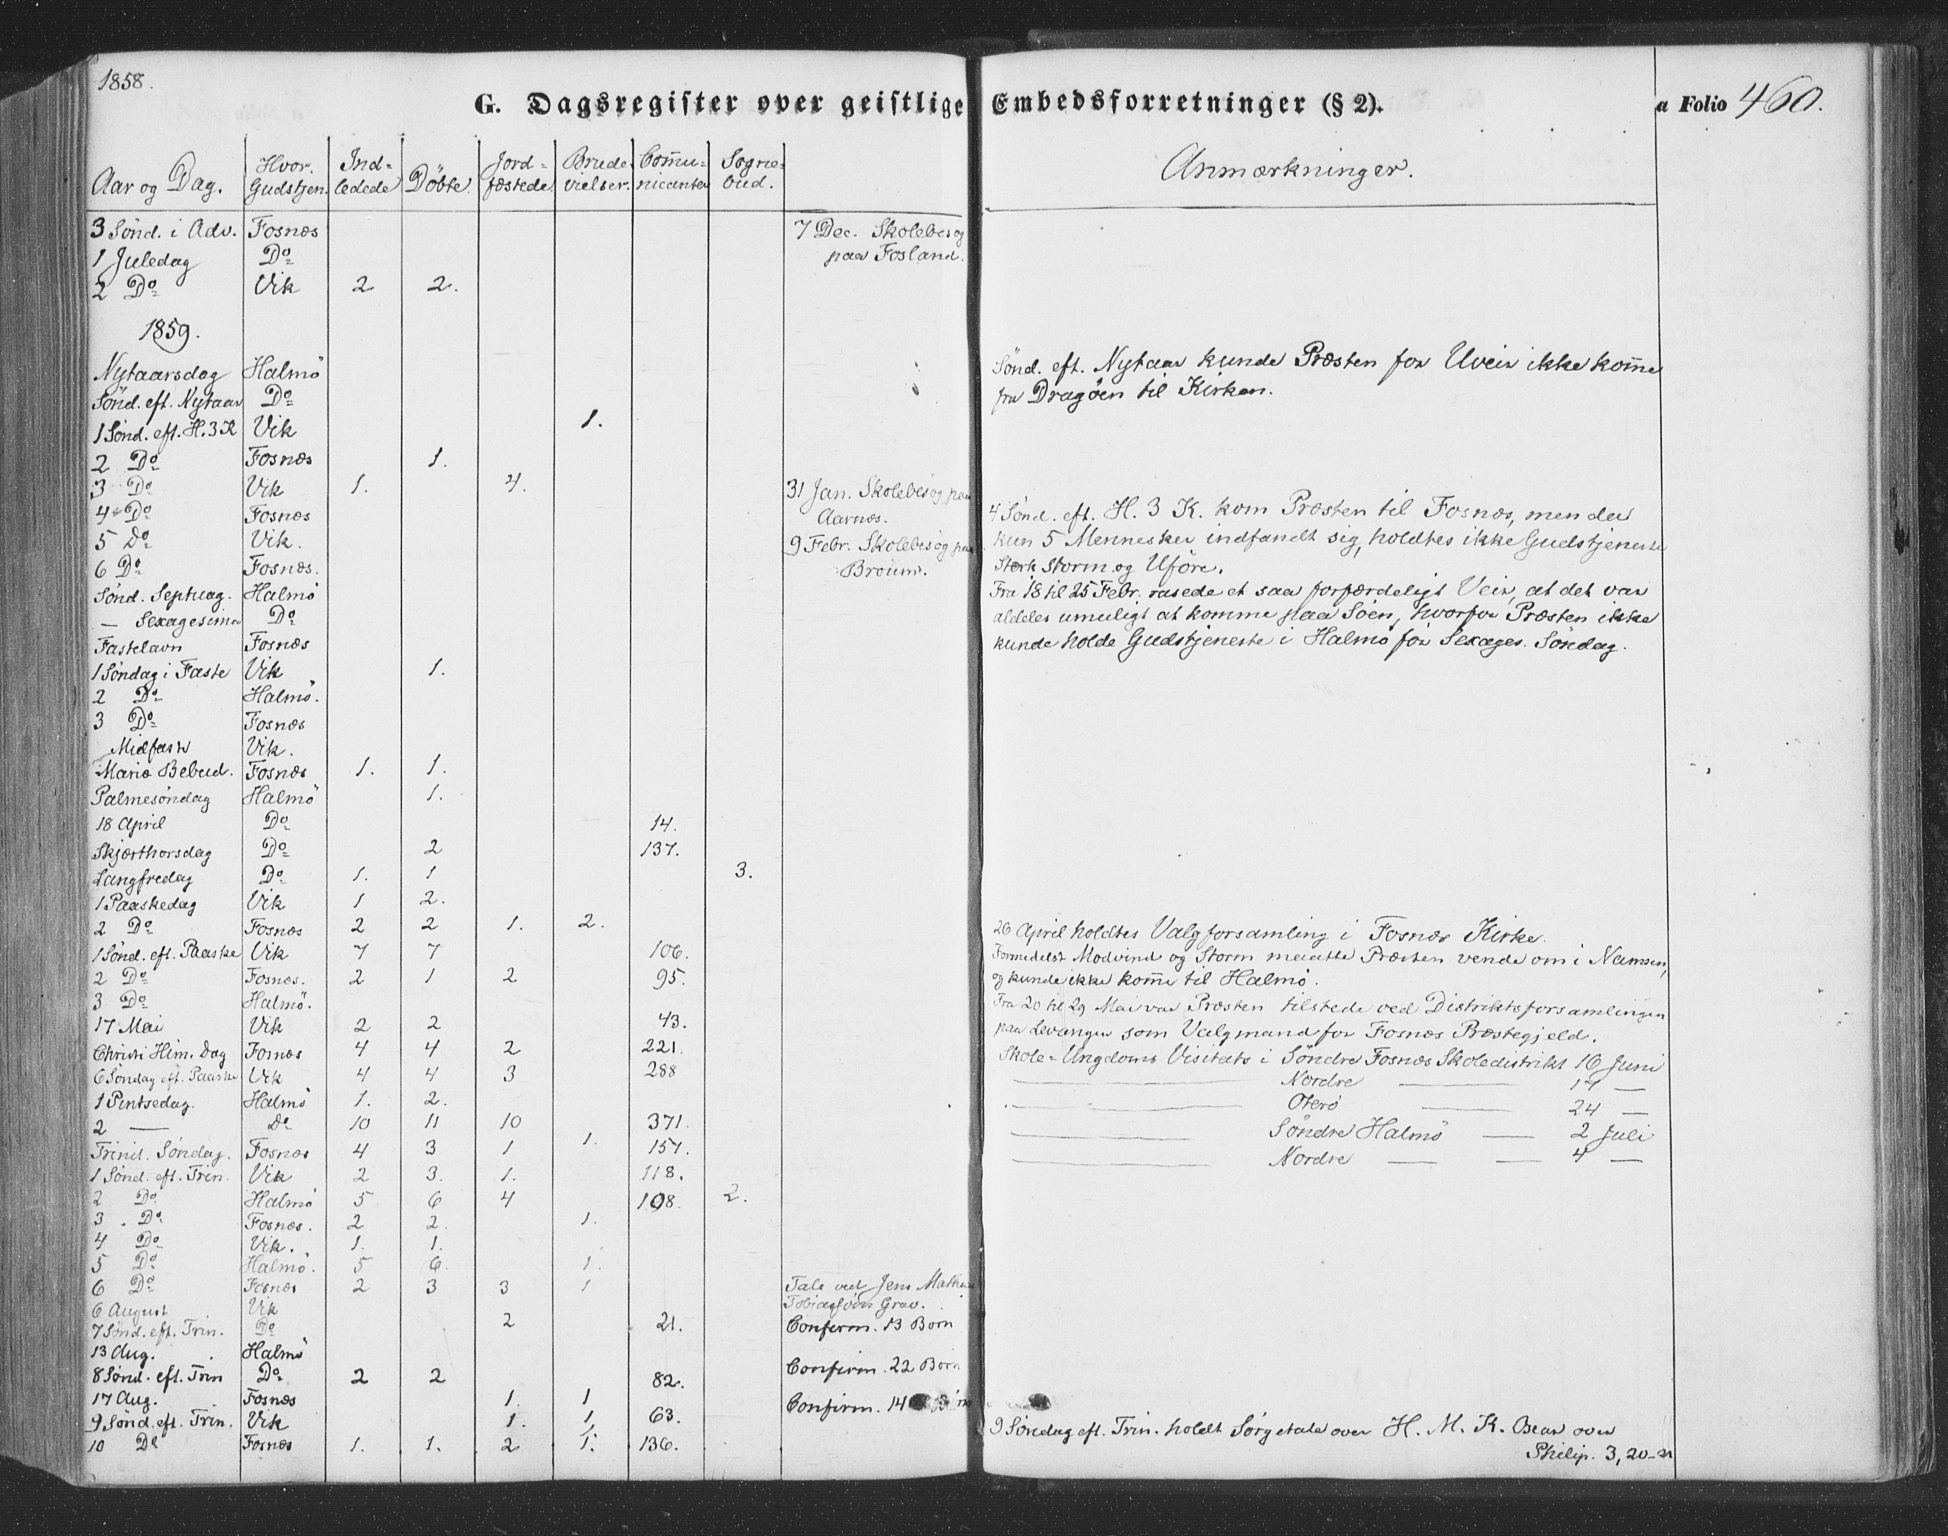 1858.
G. Dagsregister over geistlige Embedsforretninger (§ 2).
a Folio 460.
Aar og Dag. Hvor Gudstjen. Indledede Döbte. Jordfæstede Brudevielser. Com̄unicanter Sogneoud. Anmærkninger.
3 Sönd. i Adv. Fosnæs 7 Dec. Skolebesög
1 Juledag Do paa Fosland.
2 Do Vik 2 2.
1859.
Nytaarsdag Halmö
Sönd. eft. Nytaar Do
1 Sönd. eft. H. 3 K Vik 1.
2 Do Fosnæs 1.
3 Do Vik 1. 4. 31 Jan. Skolebesög paa
4 Do Fosnæs Aarnæs.
5 Do Vik. 9 Febr. Skolebesög paa
6 Do Fosnæs. Broum.
Sönd. Septuag. Halmö
— Sexagesima Do
Fastelavn Fosnæs
1 Söndag i Faste Vik 1.
2 Do Halmö.
3 Do Fosnæs
Midfaste Vik.
Mariæ Bebud. Fosnæs 1. 1.
Palmesöndag Halmö 1.
18 April Do 14.
Skjærthorsdag Do 2 137.
Langfredag Do 1. 1 3.
1 Paaskedag Vik 1 2.
2 Do Fosnæs 2 2 1. 2.
1 Sönd. eft. Paaske Vik 7 7 106.
2 Do Fosnæs. 2 1 2 95.
3 Do Halmö.
17 Mai Vik 2 2 43.
Christi Him. Dag Fosnæs 4 4 2 221.
6 Söndag eft. Paaske Vik 4 4 3 288
1 Pintsedag. Halmö 1. 2.
2 — Do 10 11 10 371.
Trinit. Söndag. Fosnæs 4 3 1 1. 157.
1 Sönd. eft. Trin. Vik 2 3. 1. 118.
2 Do Halmö 5 6 4 198. 2.
3 Do Fosnæs. 2 2. 1.
4 Do Vik. 1. 1.
5 Do Halmö. 5 6 1.
6 Do Fosnæs 2 3 3 1 Tale ved Jens
6 August Vik Grav.
7 Sönd. eft. Trin. Do 2 21. Confirm. 13 Born
13 Aug. Halmö
8 Sönd. eft. Trin Do 2 2 82. Confirm. 22 Börn
17 Aug. Fosnæs 1. 1 Confirm. 14
9 Sönd. eft. Trin. Vik 1. 1. 63.
10 Do Fosnæs 1. 1. 2 1. 136.
Sönd. eft. Nytaar kunde Præsten for Uveir ikke kom̄e
fra Dragöen til Kirken.
4 Sönd. eft. H. 3 K. kom Præsten til Fosnæs, men da
kun 5 Mennesker indfandt sig, holdtes ikke Gudstjeneste
Stærk Storm og Uföre.
Fra 18 til 25 Febr. rasede et saa forfærdeligt Veir, at det var
aldeles umuligt at komme paa Söen, hvorfor Præsten ikke
kunde holde Gudstjeneste i Halmö for Sexages. Söndag.
26 April holdtes Valgforsamling i Fosnæs Kirke.
Formedelst Modvind og Storm maatte Præsten vende om i Namsen,
og kunde ikke kom̄e til Halmö.
Fra 20 til 29 Mai var Præsten tilstede ved Distriktsforsamlingen
paa Levanger som Valgmand for Fosnæs Præstegjeld.
Skole-Ungdoms Visitats i Söndre Fosnæs Skoledistrikt 16 Juni
— Nordre — 17 —
— Oterö — 24 —
— Söndre Halmö — 2 Juli
— Nordre — — 4 —
9 Söndag eft. Trin. holdt Sörgetale over H. M. K. over
Philip. 3, 20-21